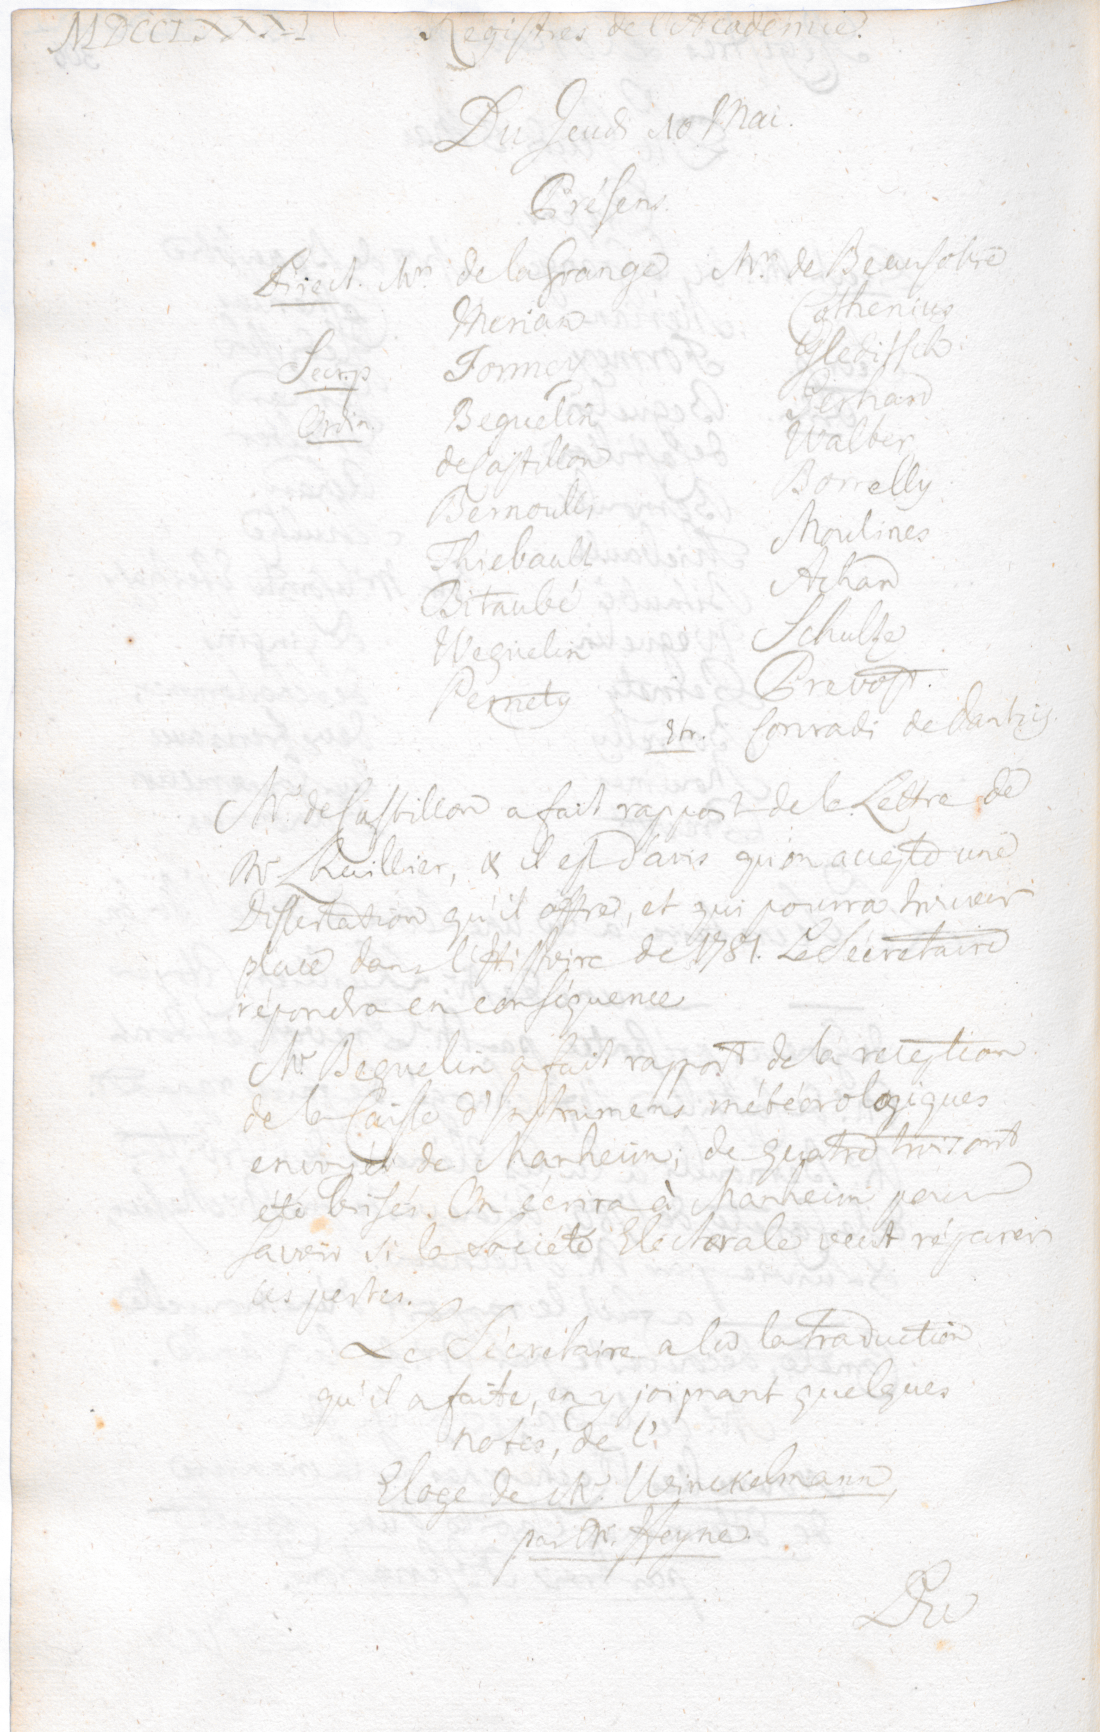 MDCCLXXXI Registres de l'Academie.
Du Jeudi 10 Mai.
Présens.
Direct. Mrs. de la Grange Mrs. de Beausobre
Merian Cothenius
Secr. p. Formey Gleditsch
Ordin. Beguelin Gerhard
de Castillon Walter
Bernoulli Borrelly
Thiebault Moulines
Bitaubé Achard
Weguelin Schulze
Pernety Prevost.
Etr. Conradi de Dantzig.
Mr. de Castillon a fait rapport de la Lettre de
Mr Lhuillier, & il est d'avis qu'on accepte une
Dissertation qu'il offre, et qui pourra trouver
place dans l'Histoire de 1781. Le Secretaire
répondra en conséquence
Mr. Beguelin a fait rapport de la reception
de la Caisse d'Instrumens météorologiques
envoyée de Manheim; de quatre trois ont
été brisés. On écrira à Manheim pour
savoir si la Société Electorale veut réparer
ces pertes.
Le Sécrétaire a lu la traduction
qu'il a faite, en y joignant quelques
notes, de l'
Eloge de Mr. Winckelmann,
par Mr. Heyne.
Du